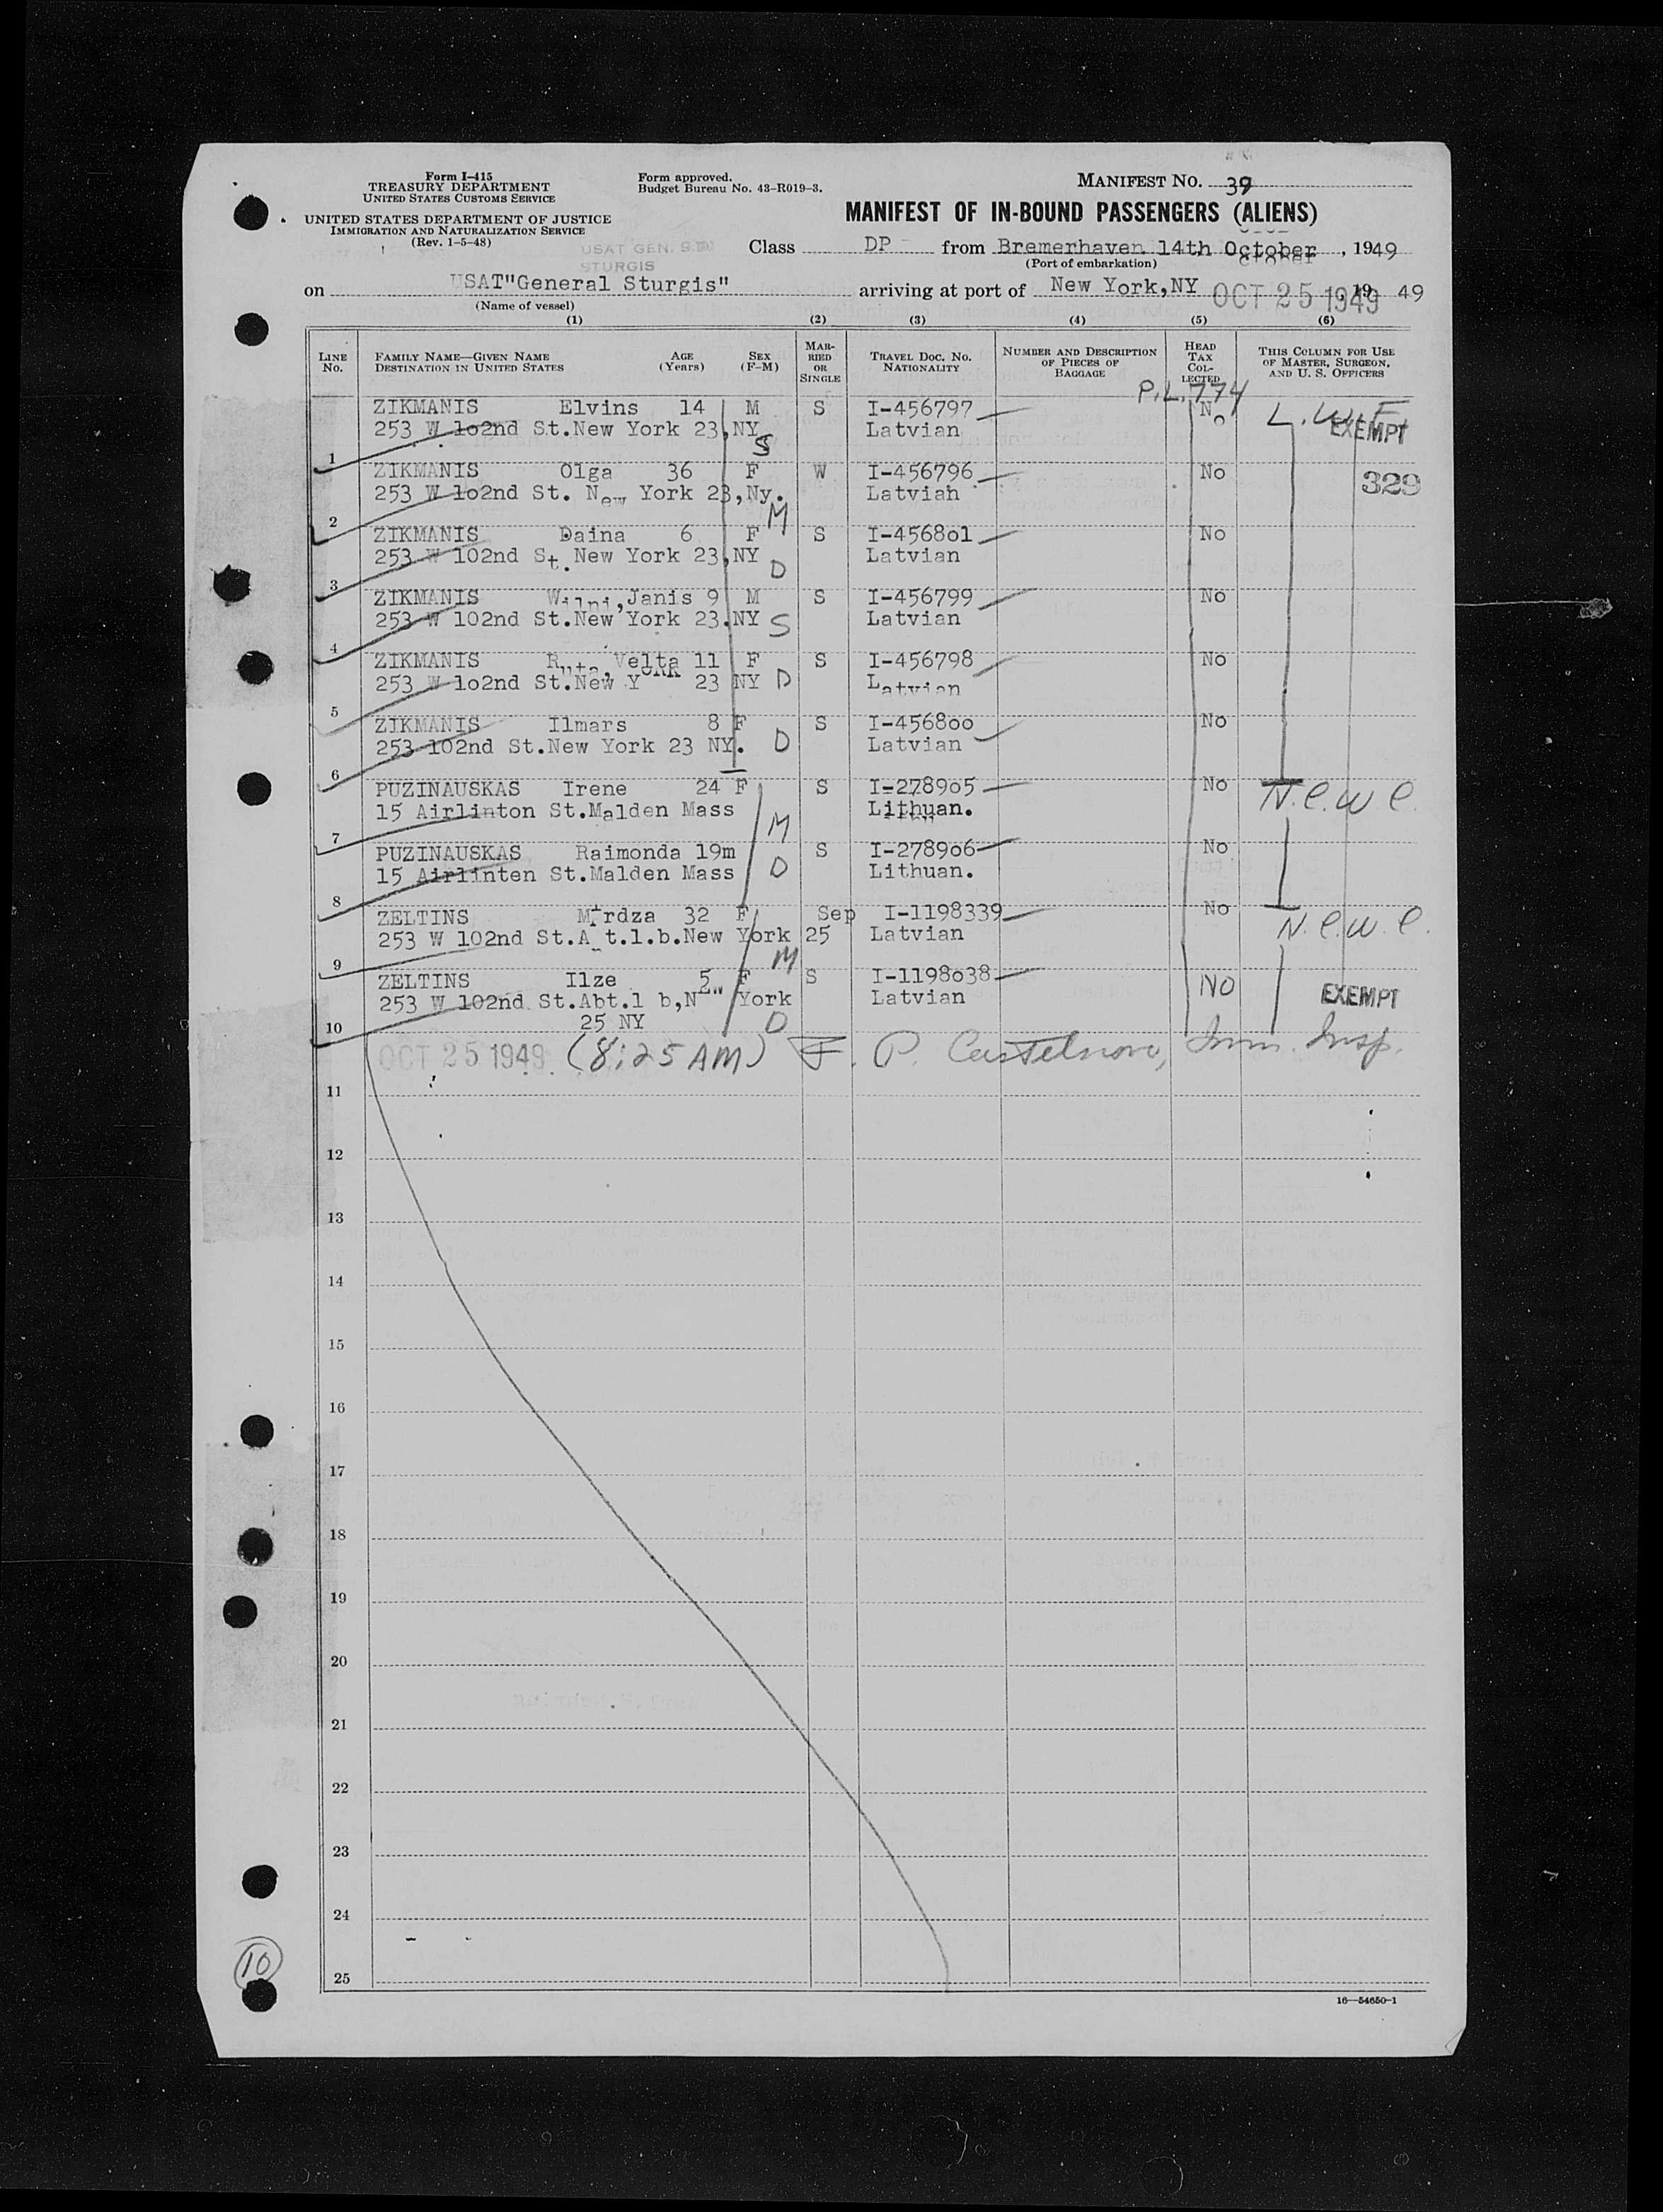 Form I-415
TREASURY DEPARTMENT
UNITED STATES CUSTOMS SERVICE
UNITED STATES DEPARTMENT OF JUSTICE
IMMIGRATION AND NATURALIZATION SERVICE
(Rev. 1-5-48)
Form approved.
Budget Bureau No. 43-R019-3.
MANIFEST NO. 39
MANIFEST OF IN-BOUND PASSENGERS (ALIENS)
USAT GEN. S.D.
STURGIS
Class DP from Bremerhaven 14th October, 1949
(Port of embarkation)
on USAT"General Sturgis" arriving at port of New York,NY OCT 25 1949, 19 49
(Name of vessel)
(1) (2) (3) (4) (5) (6)
LINE NO. FAMILY NAME—GIVEN NAME DESTINATION IN UNITED STATES AGE (Years) SEX (F-M) MARRIED OR SINGLE TRAVEL DOC. NO. NATIONALITY NUMBER AND DESCRIPTION OF PIECES OF BAGGAGE HEAD TAX COLLECTED THIS COLUMN FOR USE OF MASTER, SURGEON, AND U. S. OFFICERS
P.L. 774
ZIKMANIS Elvins 14 M S I-456797 No L.W.F.
253 W 1o2nd St.New York 23,NY S Latvian EXEMPT
1
ZIKMANIS Olga 36 F W I-456796 No
253 W 1o2nd St. New York 23,Ny. M Latvian 329
2
ZIKMANIS Daina 6 F S I-4568o1 No
253 W 102nd St.New York 23,NY D Latvian
3
ZIKMANIS Wilni,Janis 9 M S I-456799 No
253 W 102nd St.New York 23.NY S Latvian
4
ZIKMANIS Ruta, Velta 11 F S I-456798 No
253 W 1o2nd St.New York 23 NY D Latvian
5
ZIKMANIS Ilmars 8 F S I-4568oo No
253 102nd St.New York 23 NY. D Latvian
6
PUZINAUSKAS Irene 24 F S I-2789o5 No N.C.W.C.
15 Airlinton St.Malden Mass M Lithuan.
7
PUZINAUSKAS Raimonda 19m S I-2789o6 No
15 Airlinten St.Malden Mass D Lithuan.
8
ZELTINS Mirdza 32 F Sep I-1198339 No N.C.W.C.
253 W 102nd St.A t.1.b.New York 25 M Latvian
9
ZELTINS Ilze 5 F S I-1198o38 NO
253 W 102nd St.Abt.1 b,New York Latvian EXEMPT
25 NY D
10
OCT 25 1949 (8:25 AM) F. P. Castelnovo, Imm. Insp.
11
12
13
14
15
16
17
18
19
20
21
22
23
24
25
10
16—54650-1